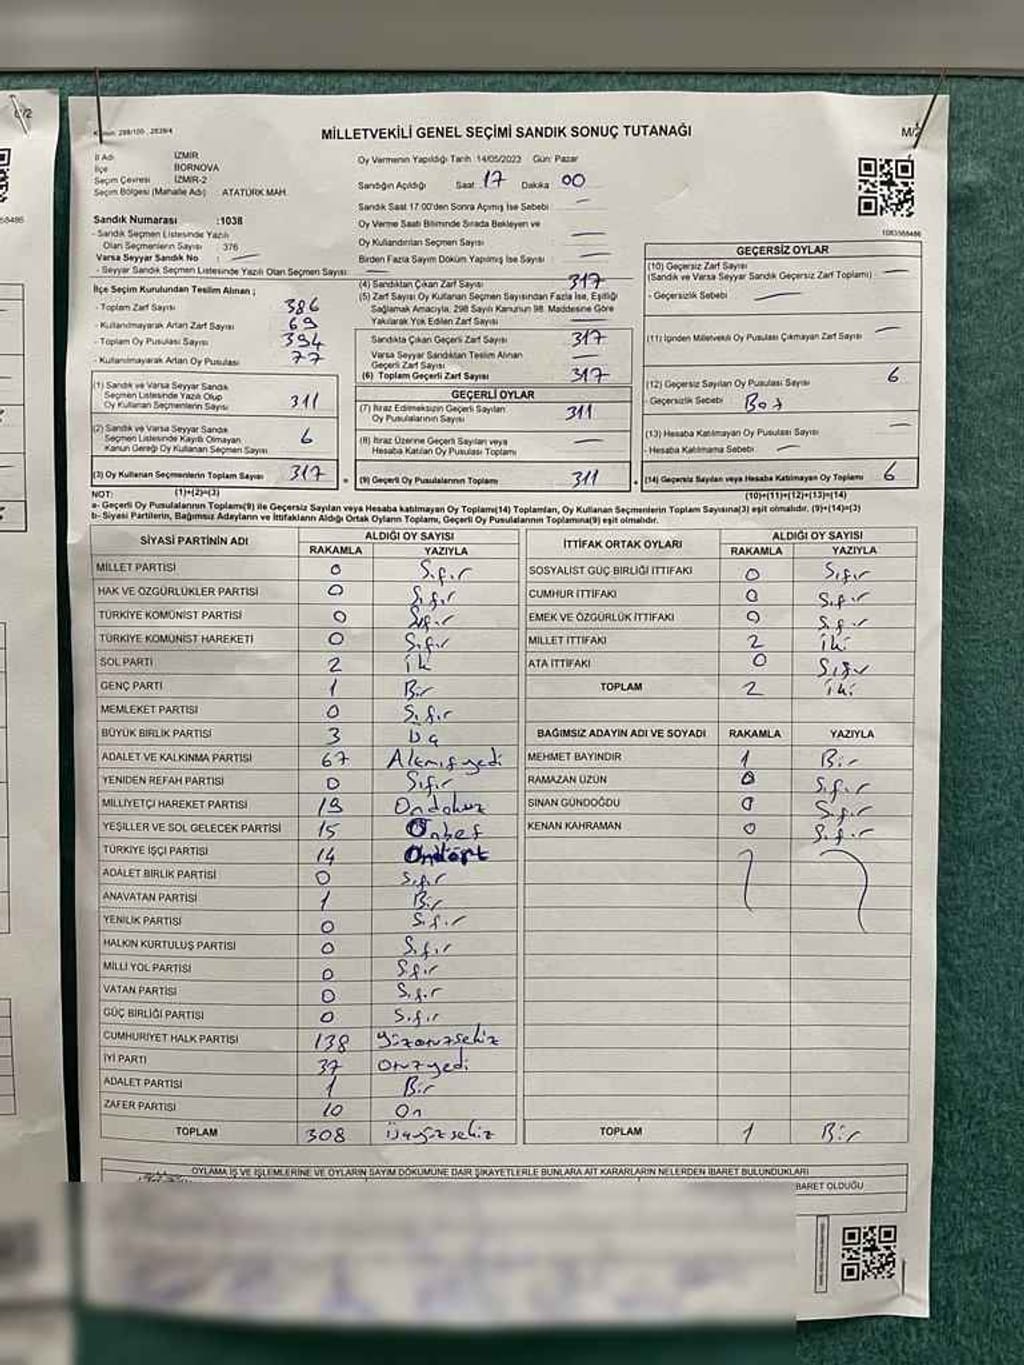 Kanun: 298/100 , 2839/4
MİLLETVEKİLİ GENEL SEÇİMİ SANDIK SONUÇ TUTANAĞI
M/2
İl Adı İZMİR
İlçe BORNOVA
Seçim Çevresi İZMİR-2
Seçim Bölgesi (Mahalle Adı) ATATÜRK MAH.
Oy Vermenin Yapıldığı Tarih 14/05/2023 Gün: Pazar
Sandığın Açıldığı Saat 17 Dakika 00
Sandık Saat 17:00'den Sonra Açımış İse Sebebi —
Oy Verme Saati Bitiminde Sırada Bekleyen ve
Oy Kullandırılan Seçmen Sayısı —
Birden Fazla Sayım Döküm Yapılmış İse Sayısı —
Sandık Numarası :1038
- Sandık Seçmen Listesinde Yazılı
Olan Seçmenlerin Sayısı : 376
Varsa Seyyar Sandık No : —
- Seyyar Sandık Seçmen Listesinde Yazılı Olan Seçmen Sayısı: —
İlçe Seçim Kurulundan Teslim Alınan ;
- Toplam Zarf Sayısı 386
- Kullanılmayarak Artan Zarf Sayısı 69
- Toplam Oy Pusulası Sayısı 394
- Kullanılmayarak Artan Oy Pusulası 77
(1) Sandık ve Varsa Seyyar Sandık
Seçmen Listesinde Yazılı Olup
Oy Kullanan Seçmenlerin Sayısı 311
(2) Sandık ve Varsa Seyyar Sandık
Seçmen Listesinde Kayıtlı Olmayan
Kanun Gereği Oy Kullanan Seçmen Sayısı 6
(3) Oy Kullanan Seçmenlerin Toplam Sayısı 317
(1)+(2)=(3)
(4) Sandıktan Çıkan Zarf Sayısı 317
(5) Zarf Sayısı Oy Kullanan Seçmen Sayısından Fazla İse, Eşitliği
Sağlamak Amacıyla, 298 Sayılı Kanunun 98. Maddesine Göre
Yakılarak Yok Edilen Zarf Sayısı —
Sandıkta Çıkan Geçerli Zarf Sayısı 317
Varsa Seyyar Sandıktan Teslim Alınan
Geçerli Zarf Sayısı —
(6) Toplam Geçerli Zarf Sayısı 317
GEÇERLİ OYLAR
(7) İtiraz Edilmeksizin Geçerli Sayılan
Oy Pusulalarının Sayısı 311
(8) İtiraz Üzerine Geçerli Sayılan veya
Hesaba Katılan Oy Pusulası Toplamı —
(9) Geçerli Oy Pusulalarının Toplamı 311
GEÇERSİZ OYLAR
(10) Geçersiz Zarf Sayısı
(Sandık ve Varsa Seyyar Sandık Geçersiz Zarf Toplamı) —
- Geçersizlik Sebebi —
(11) İçinden Milletvekili Oy Pusulası Çıkmayan Zarf Sayısı —
(12) Geçersiz Sayılan Oy Pusulası Sayısı 6
- Geçersizlik Sebebi Boş
(13) Hesaba Katılmayan Oy Pusulası Sayısı —
- Hesaba Katılmama Sebebi —
(14) Geçersiz Sayılan veya Hesaba Katılmayan Oy Toplamı 6
(10)+(11)+(12)+(13)=(14)
NOT:
a- Geçerli Oy Pusulalarının Toplamı(9) ile Geçersiz Sayılan veya Hesaba katılmayan Oy Toplamı(14) Toplamları, Oy Kullanan Seçmenlerin Toplam Sayısına(3) eşit olmalıdır. (9)+(14)=(3)
b- Siyasi Partilerin, Bağımsız Adayların ve İttifakların Aldığı Ortak Oyların Toplamı, Geçerli Oy Pusulalarının Toplamına(9) eşit olmalıdır.
SİYASİ PARTİNİN ADI ALDIĞI OY SAYISI
RAKAMLA YAZIYLA
MİLLET PARTİSİ 0 Sıfır
HAK VE ÖZGÜRLÜKLER PARTİSİ 0 Sıfır
TÜRKİYE KOMÜNİST PARTİSİ 0 Sıfır
TÜRKİYE KOMÜNİST HAREKETİ 0 Sıfır
SOL PARTİ 2 İki
GENÇ PARTİ 1 Bir
MEMLEKET PARTİSİ 0 Sıfır
BÜYÜK BİRLİK PARTİSİ 3 Üç
ADALET VE KALKINMA PARTİSİ 67 Altmışyedi
YENİDEN REFAH PARTİSİ 0 Sıfır
MİLLİYETÇİ HAREKET PARTİSİ 19 Ondokuz
YEŞİLLER VE SOL GELECEK PARTİSİ 15 Onbeş
TÜRKİYE İŞÇİ PARTİSİ 14 Ondört
ADALET BİRLİK PARTİSİ 0 Sıfır
ANAVATAN PARTİSİ 1 Bir
YENİLİK PARTİSİ 0 Sıfır
HALKIN KURTULUŞ PARTİSİ 0 Sıfır
MİLLİ YOL PARTİSİ 0 Sıfır
VATAN PARTİSİ 0 Sıfır
GÜÇ BİRLİĞİ PARTİSİ 0 Sıfır
CUMHURİYET HALK PARTİSİ 138 Yüzotuzsekiz
İYİ PARTİ 37 Otuzyedi
ADALET PARTİSİ 1 Bir
ZAFER PARTİSİ 10 On
TOPLAM 308 Üçyüzsekiz
İTTİFAK ORTAK OYLARI ALDIĞI OY SAYISI
RAKAMLA YAZIYLA
SOSYALİST GÜÇ BİRLİĞİ İTTİFAKI 0 Sıfır
CUMHUR İTTİFAKI 0 Sıfır
EMEK VE ÖZGÜRLÜK İTTİFAKI 0 Sıfır
MİLLET İTTİFAKI 2 İki
ATA İTTİFAKI 0 Sıfır
TOPLAM 2 İki
BAĞIMSIZ ADAYIN ADI VE SOYADI RAKAMLA YAZIYLA
MEHMET BAYINDIR 1 Bir
RAMAZAN UZUN 0 Sıfır
SİNAN GÜNDOĞDU 0 Sıfır
KENAN KAHRAMAN 0 Sıfır
TOPLAM 1 Bir
OYLAMA İŞ VE İŞLEMLERİNE VE OYLARIN SAYIM DÖKÜMÜNE DAİR ŞİKAYETLERLE BUNLARA AİT KARARLARIN NELERDEN İBARET BULUNDUKLARI
BARET OLDUĞU